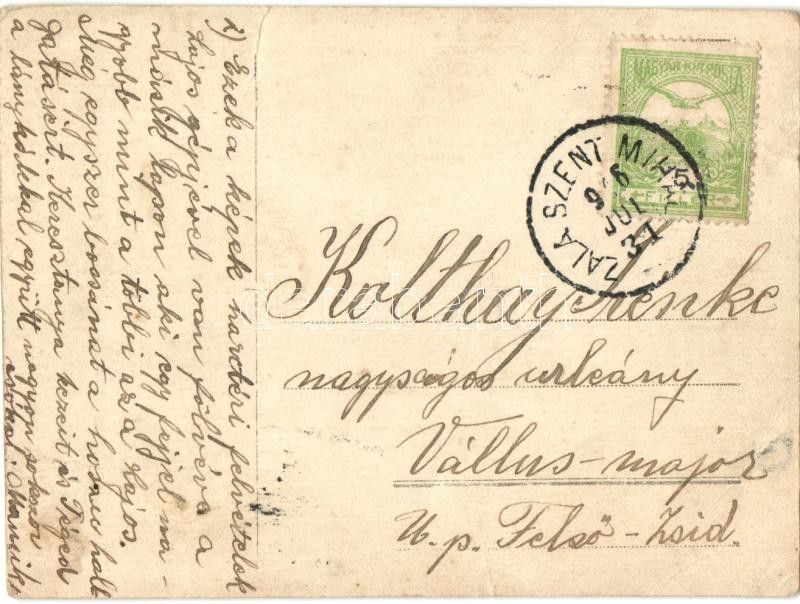 MAGYAR KIR. POSTA
FILLÉR
ZALA SZENT MIHÁLY
906 JUL 31
Kolthay Irenke
nagyságos urleány
Vállus-major
U. p. Felső-Zsid.
2) Ezek a képek harctéri felvételek
Lajos gépjével van fölvéve a
másik lapon aki egy fejjel na-
gyobb mint a többi az a Lajos.
Még egyszer bocsánat a hosszu hall-
gatásért. Keresztanya kezeit és Téged
a lánykákkal együtt nagyon sokszor
csókol Mancika